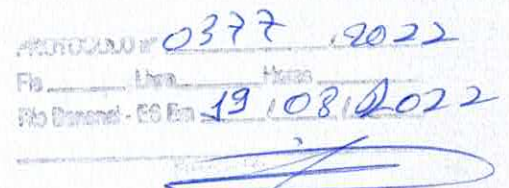 PROTOCOLO nº 0377 . 2022
Fls ______ Livro ______ Horas ______
Rio Bananal - ES Em 19 / 08 / 2022